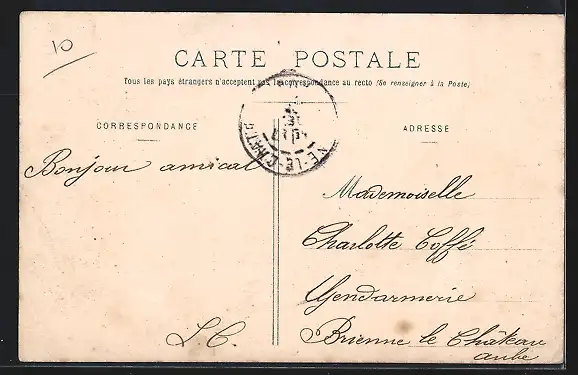 10
CARTE POSTALE
Tous les pays étrangers n'acceptent pas la correspondance au recto (Se renseigner à la Poste)
CORRESPONDANCE
ADRESSE
NE-LE-CHAT
Bonjour amical
Mademoiselle
Charlotte Coffé
Gendarmerie
Brienne le Château
aube
L.C.